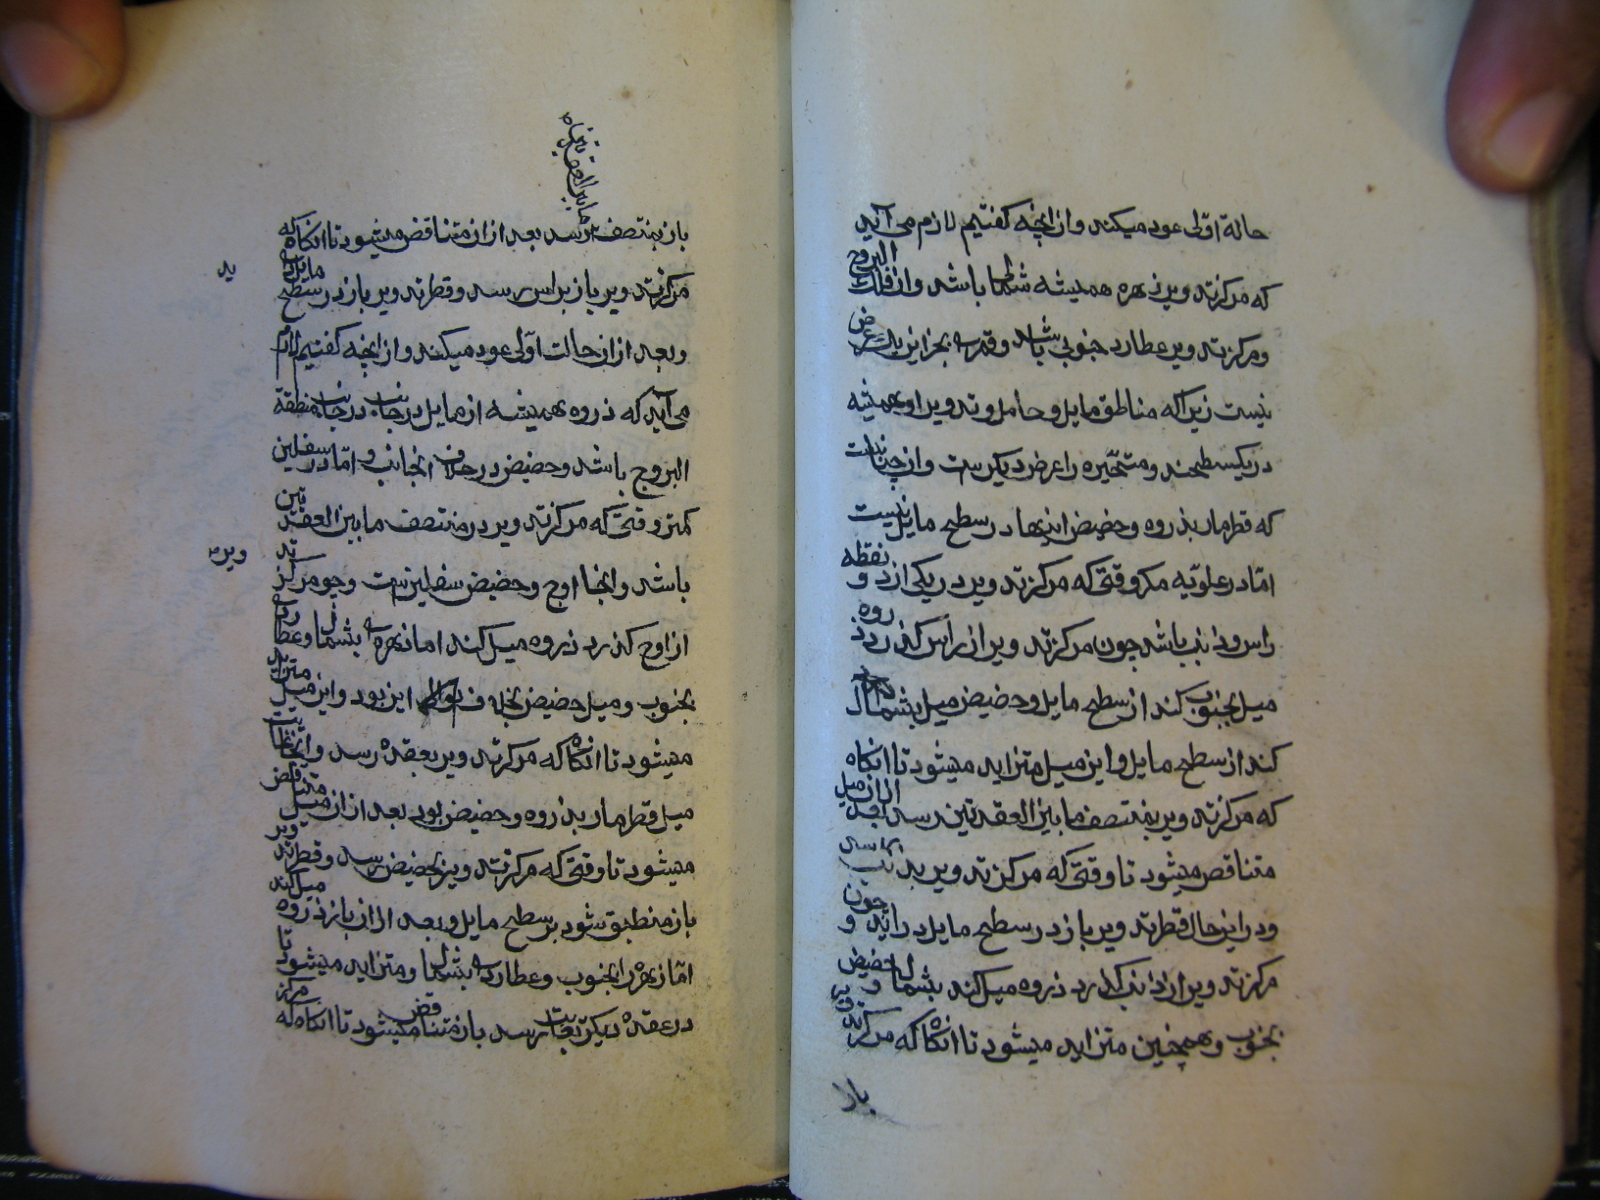 حالة اوّلی عود میکند و از انچه کفتیم لازم می آید
که مرکز تدویر زهره همیشه شمالی باشد و از فلك البروج
و مرکز تدویر عطارد جنوبی باشد و قمر به بجز این یك عرض
نیست زیرا که مناطق مایل و حامل و تدویر او همیشه
در یکسطحند و متحیّره را عرض دیکرست و از چنانست
که قطر مار بذروه و حضیض اینها در سطح مایل نیست
امّا در علویّه مکر وقتی که مرکز تدویر در یکی از دو نقطه
راس و ذنب باشد چون مرکز تدویر از رأس کذرد ذروه
میل بجنوب کند از سطح مایل و حضیض میل بشمال
کند از سطح مایل و این میل متزاید میشود تا انکاه
که مرکز تدویر بمنتصف ما بین العقدتین رسد بعد از ان میل
متناقص میشود تا وقتی که مرکز تدویر بذنب رسد
و در این حال قطر تدویر باز در سطح مایل در اید و چون
مرکز تدویر از ذنب کذرد ذروه میل کند بشمال و حضیض
بجنوب و همچنین متزاید میشود تا انکاه که مرکز تدویر
باز
ما بین العقدتین
باز بمنتصف برسد بعد از ان متناقص میشود تا انکاه که
مرکز تدویر باز براس رسد و قطر تدویر باز در سطح مایل
ید
و بعد از ان حالت اوّلی عود میکند و از انچه کفتیم لازم
می آید که ذروه همیشه از مایل در جانب منطقة
البروج باشد و حضیض در خلاف انجانب و امّا در سفلیین
کمتر وقتی که مرکز تدویر در منتصف ما بین العقدتین
باشد و انجا اوج و حضیض سفلیین ست و چو مرکز تد
ویر
از اوج کذرد ذروه میل کند اما زهره بشمال و عطارد
بجنوب و میل حضیض بخلاف این بود و این میل متزاید
میشود تا انکاه که مرکز تدویر بعقده رسد و اینجا غایت
میل قطر مار بذروه و حضیض بود بعد از ان میل متناقض
میشود تا وقتی که مرکز تدویر بحضیض رسد و قطر تدویر
باز منطبق شود بر سطح مایل و بعد از ان باز ذروه میل کند
امّا زهره را بجنوب و عطارد بشمال و متزاید میشود تا
در عقدهٔ دیکر بغایت رسد باز متناقض میشود تا انکاه که مرکز